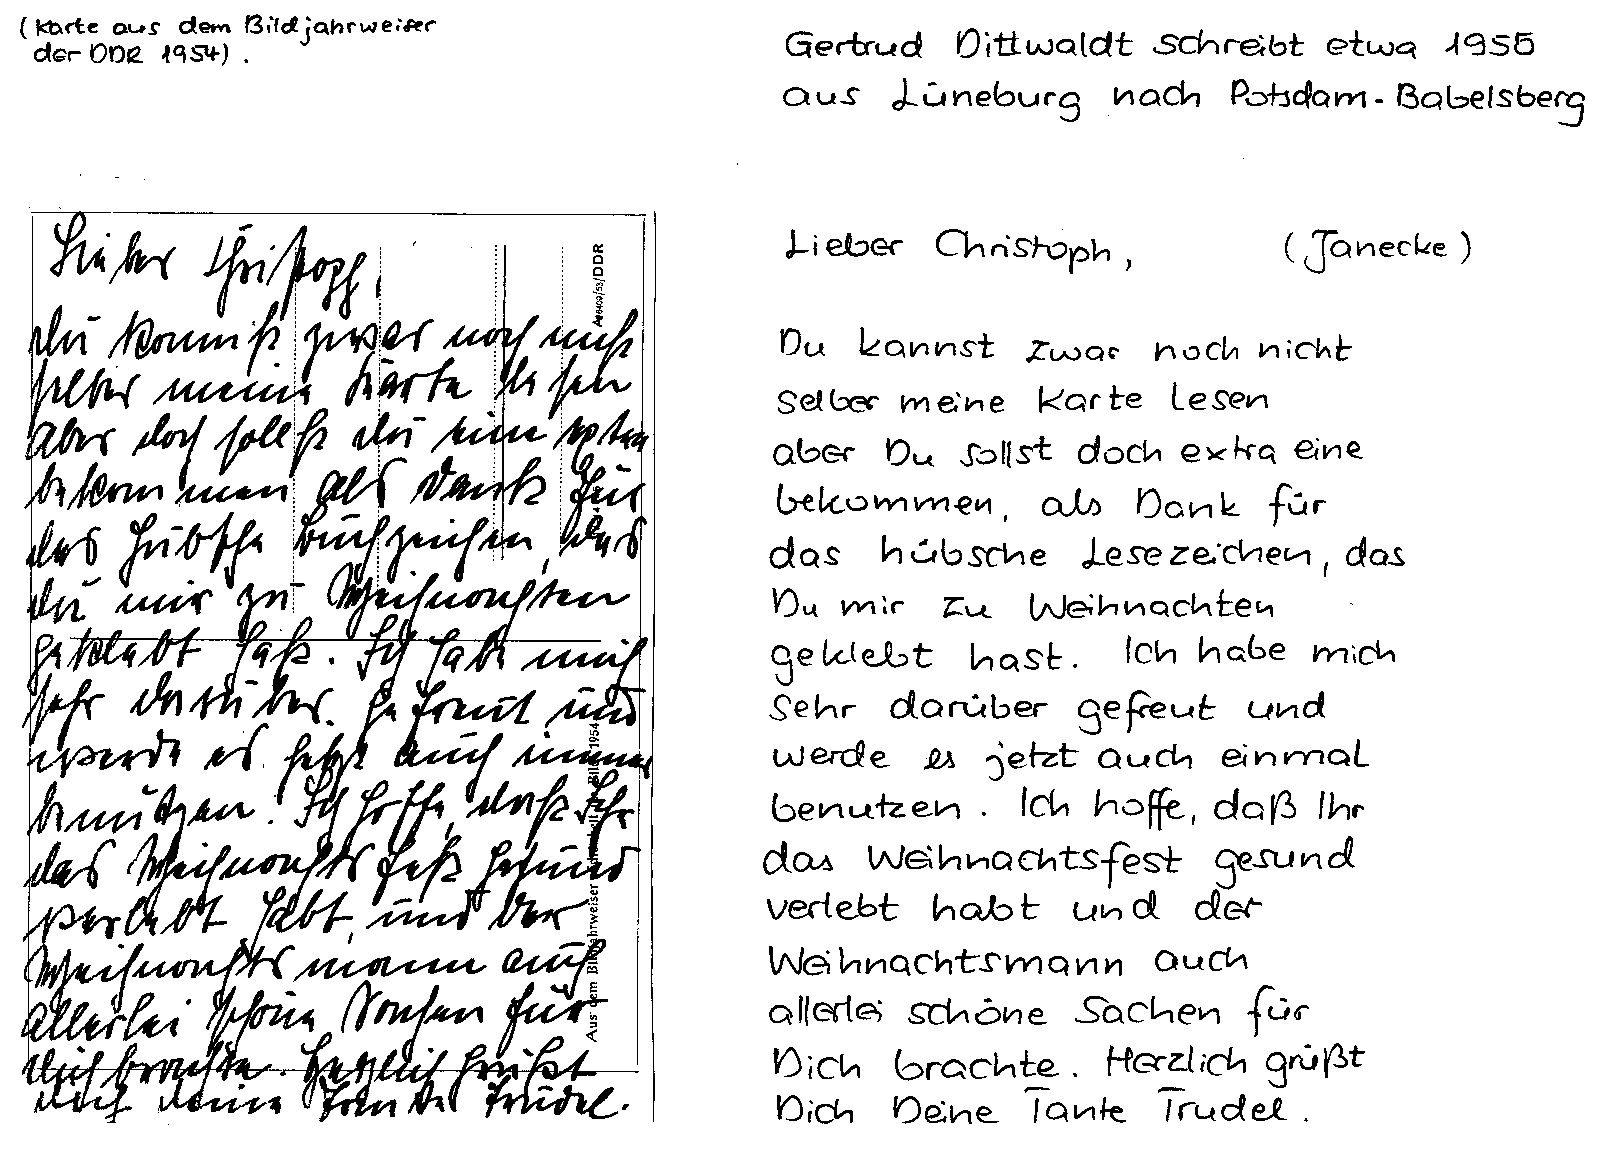 (Karte aus dem Bildjahrweiser
der DDR 1954).
Gertrud Dittwaldt schreibt etwa 1955
aus Lüneburg nach Potsdam-Babelsberg
Lieber Christoph,
du kannst zwar noch nicht
selber meine Karte lesen
Aber doch sollst du eine extra
bekommen als Dank für
das hübsche Buchzeichen, das
du mir zu Weihnachten
geklebt hast. Ich habe mich
sehr darüber gefreut und
werde es jetzt auch immer
benutzen. Ich hoffe, daß Ihr
das Weihnachtsfest gesund
verlebt habt, und der
Weihnachtsmann auch
allerlei schöne Sachen für
dich brachte. Herzlich grüßt
dich deine Tante Trudel.
/53/DDR
Aus dem Bildjahrweiser 1954
Lieber Christoph, (Janecke)
Du kannst zwar noch nicht
selber meine Karte lesen
aber Du sollst doch extra eine
bekommen, als Dank für
das hübsche Lesezeichen, das
Du mir zu Weihnachten
geklebt hast. Ich habe mich
sehr darüber gefreut und
werde es jetzt auch einmal
benutzen. Ich hoffe, daß Ihr
das Weihnachtsfest gesund
verlebt habt und der
Weihnachtsmann auch
allerlei schöne Sachen für
Dich brachte. Herzlich grüßt
Dich Deine Tante Trudel.